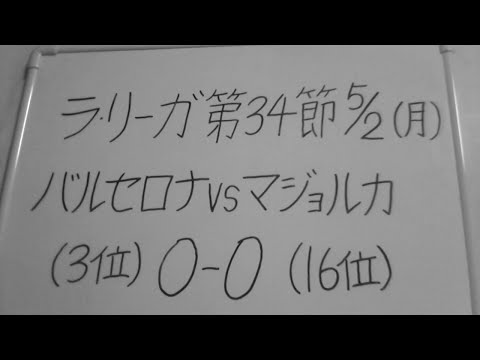 ラ・リーガ第34節5/2(月)
バルセロナvsマジョルカ
(3位) 0-0 (16位)